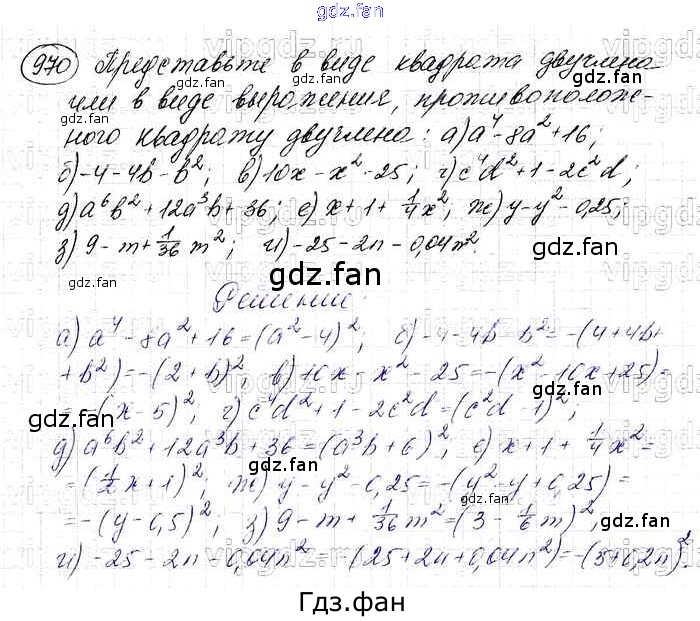 gdz.fan
970 Представьте в виде квадрата двучлена
или в виде выражения, противополож-
ного квадрату двучлена: а) a⁴ - 8a² + 16;
б) -4 - 4b - b²; в) 10x - x² - 25; г) c⁴d² + 1 - 2c²d;
д) a⁶b² + 12a³b + 36; е) x + 1 + 1/4 x²; ж) y - y² - 0,25;
з) 9 - m + 1/36 m²; и) -25 - 2n - 0,04n².
gdz.fan
Решение:
а) a⁴ - 8a² + 16 = (a² - 4)²; б) -4 - 4b - b² = -(4 + 4b +
+ b²) = -(2 + b)²; в) 10x - x² - 25 = -(x² - 10x + 25) =
= -(x - 5)²; г) c⁴d² + 1 - 2c²d = (c²d - 1)²;
д) a⁶b² + 12a³b + 36 = (a³b + 6)²; е) x + 1 + 1/4 x² =
= (1/2 x + 1)²; ж) y - y² - 0,25 = -(y² - y + 0,25) =
= -(y - 0,5)²; з) 9 - m + 1/36 m² = (3 - 1/6 m)²;
и) -25 - 2n - 0,04n² = -(25 + 2n + 0,04n²) = -(5 + 0,2n)².
Гдз.фан